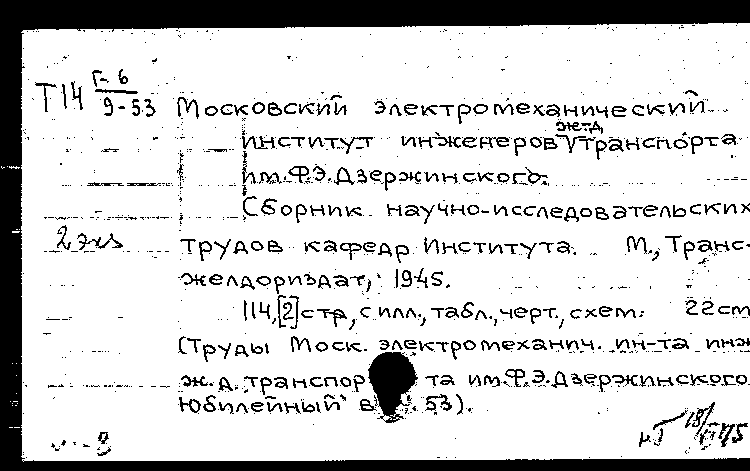 Т14 Г-6
9-53
Московский электромеханический
ж.-д.
институт инженеров транспорта
им.Ф.Э.Дзержинского.
Сборник научно-исследовательских
2 экз
трудов кафедр Института. М., Транс-
желдориздат, 1945.
114,[2]стр, с илл., табл., черт., схем. 22см
(Труды Моск. электромеханич. ин-та инж
ж.д. транспор та им.Ф.Э.Дзержинского
Юбилейный в . 53).